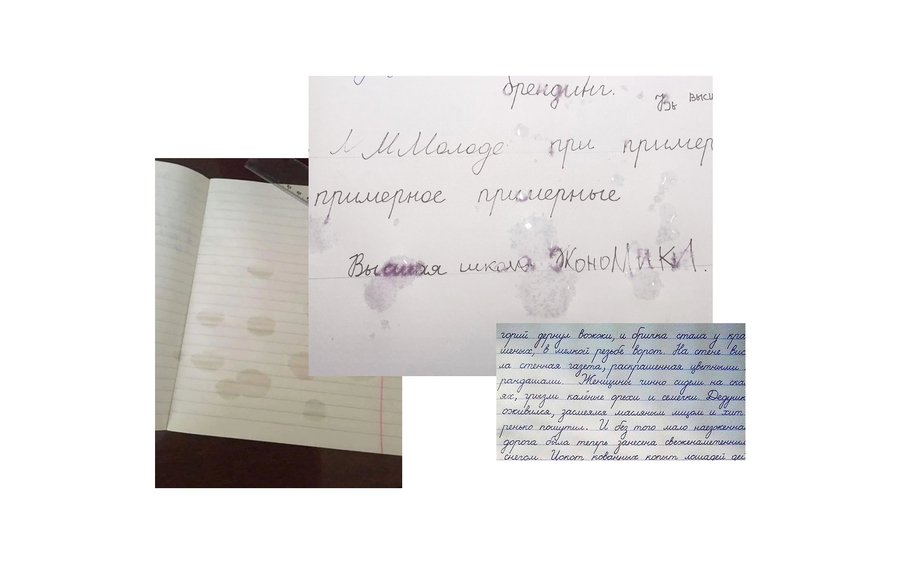 брендинг.
Уь высш
М М Молоде при пример
примерное примерные
Высшая школа ЭКОНОМИКИ.
горий дернул вожжи, и бричка стала у кра
шеных, в мелкой резьбе ворот. На стене вис
ла стенная газета, раскрашенная цветными
рандашами. Женщины чинно сидели на ска
ях, грызли каленые орехи и семечки. Дедушк
оживился, засмеялся масляным лицом и хит
ренько пошутил. И без того мало наезженна
дорога была теперь занесена свеженаметенным
снегом. Цокот кованных копыт лошадей де